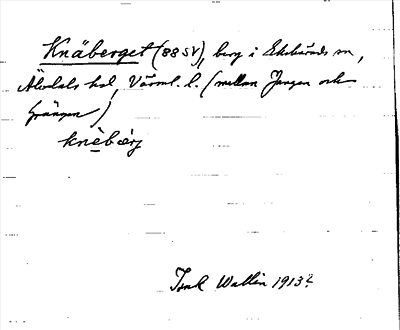 Knäberget (88 SV), berg i Ekshärads sn,
Älvdals hd, Värml. l. (mellan Jangen och
Grängen)
knèbærj
Isak Wallin 1913?